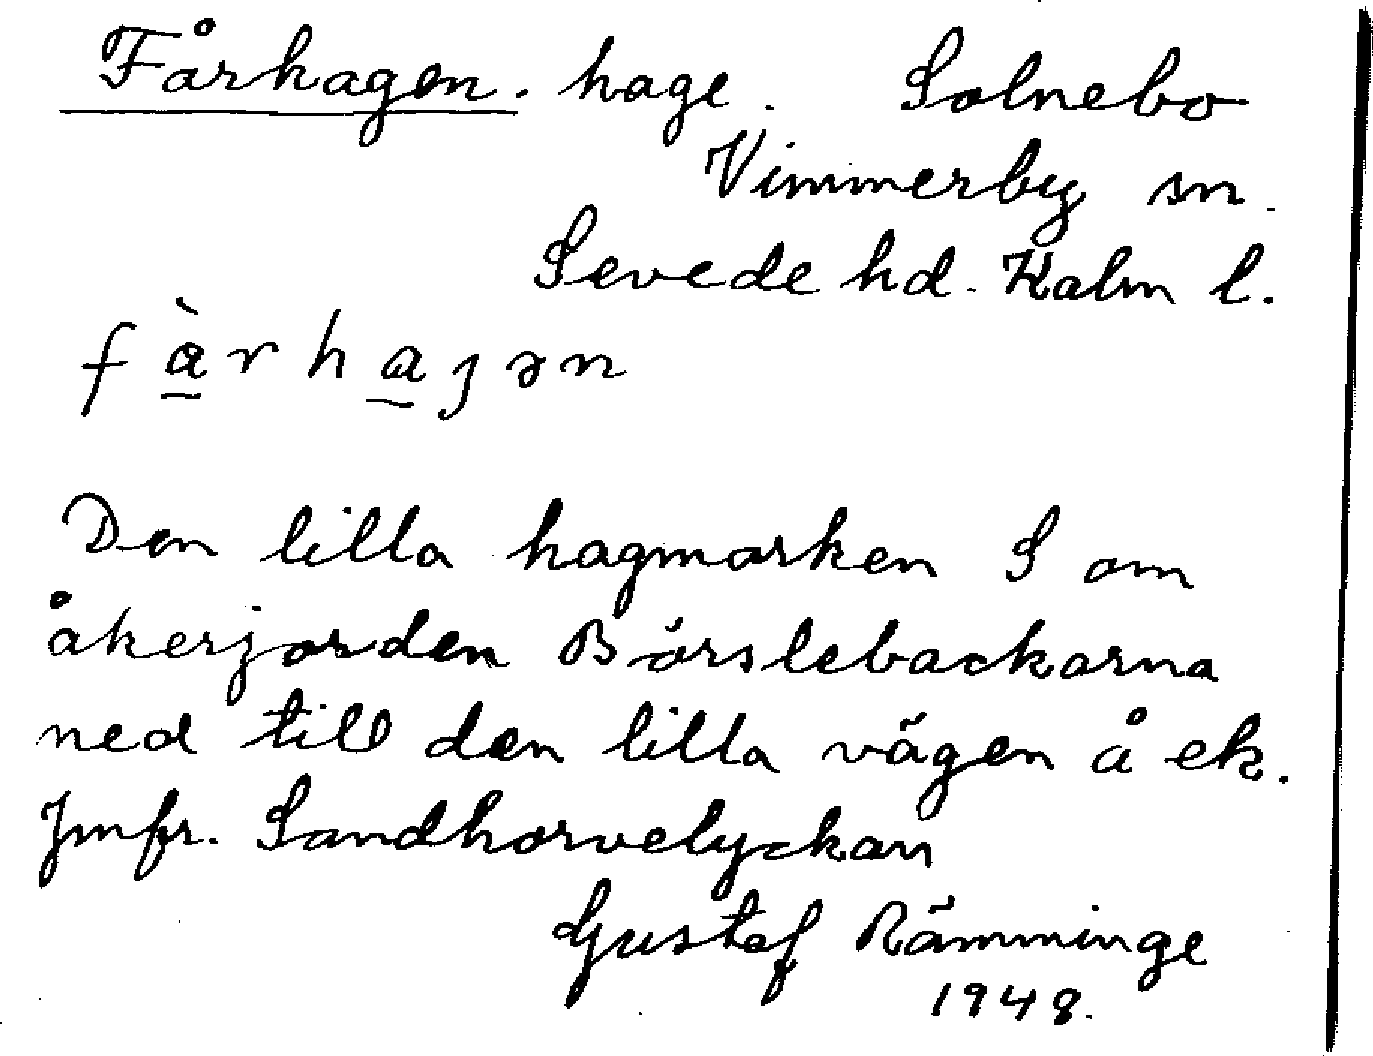 Fårhagen. hage. Solnebo
Vimmerby sn.
Sevede hd. Kalm l.
fà̲rha̲ȷən
Den lilla hagmarken S om
åkerjorden Börslebackarna
ned till den lilla vägen å ek.
Jmfr. Sandhorvelyckan
Gustaf Rämminge
1948.